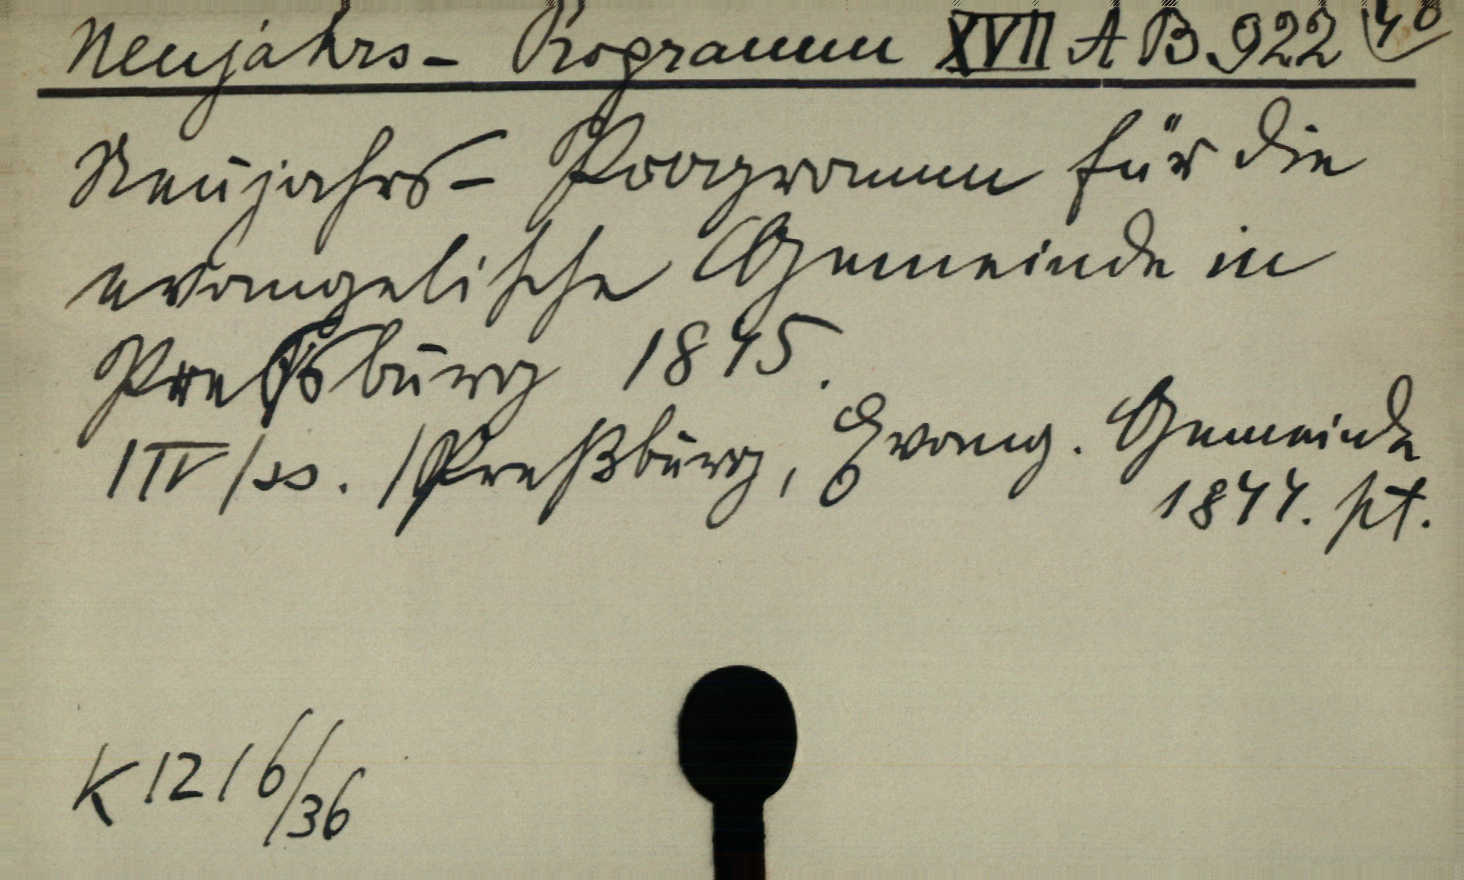 Neujahrs- Programm XVII A B 922 (40
Neujahrs- Programm für die
evangelische Gemeinde in
Preßburg 1845.
/Preßburg, Evang. Gemeinde
1844. pt.
K 1216/36